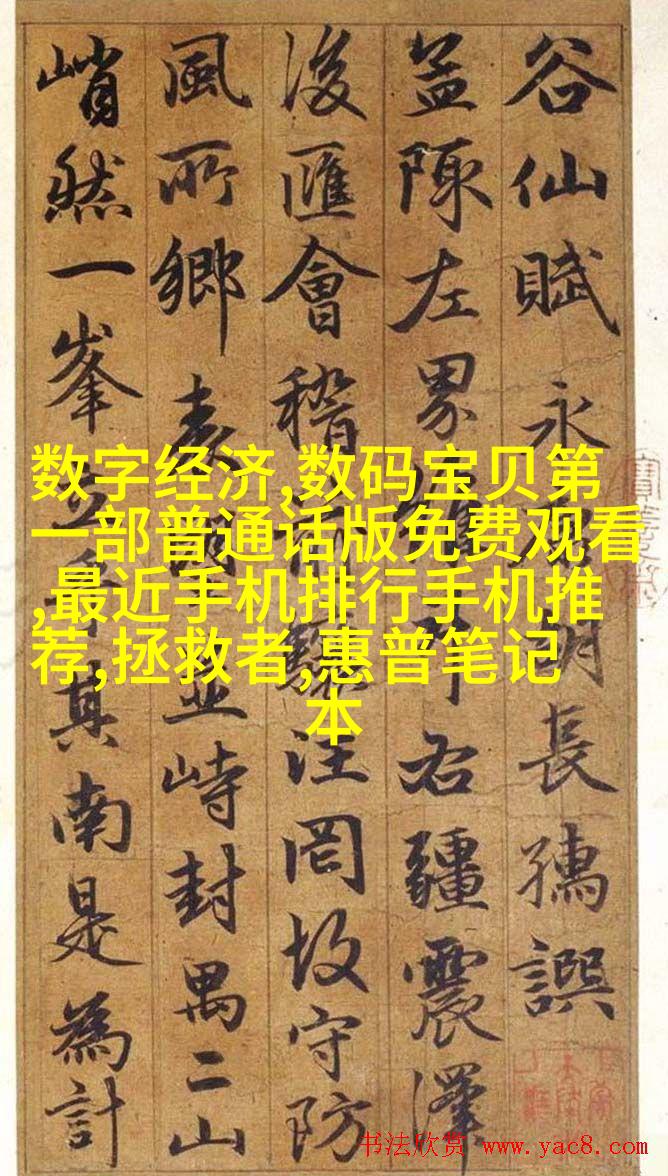 谷仙賦 永胡長孺譔
左界右疆震澤
後匯會稽汪罔守防
風所鄉表並峙封禺二山
峭然一峯立乎其南是為計
数字经济,数码宝贝第
一部普通话版免费观看
,最近手机排行手机推
荐,拯救者,惠普笔记
本
书法欣赏 www.yac8.com